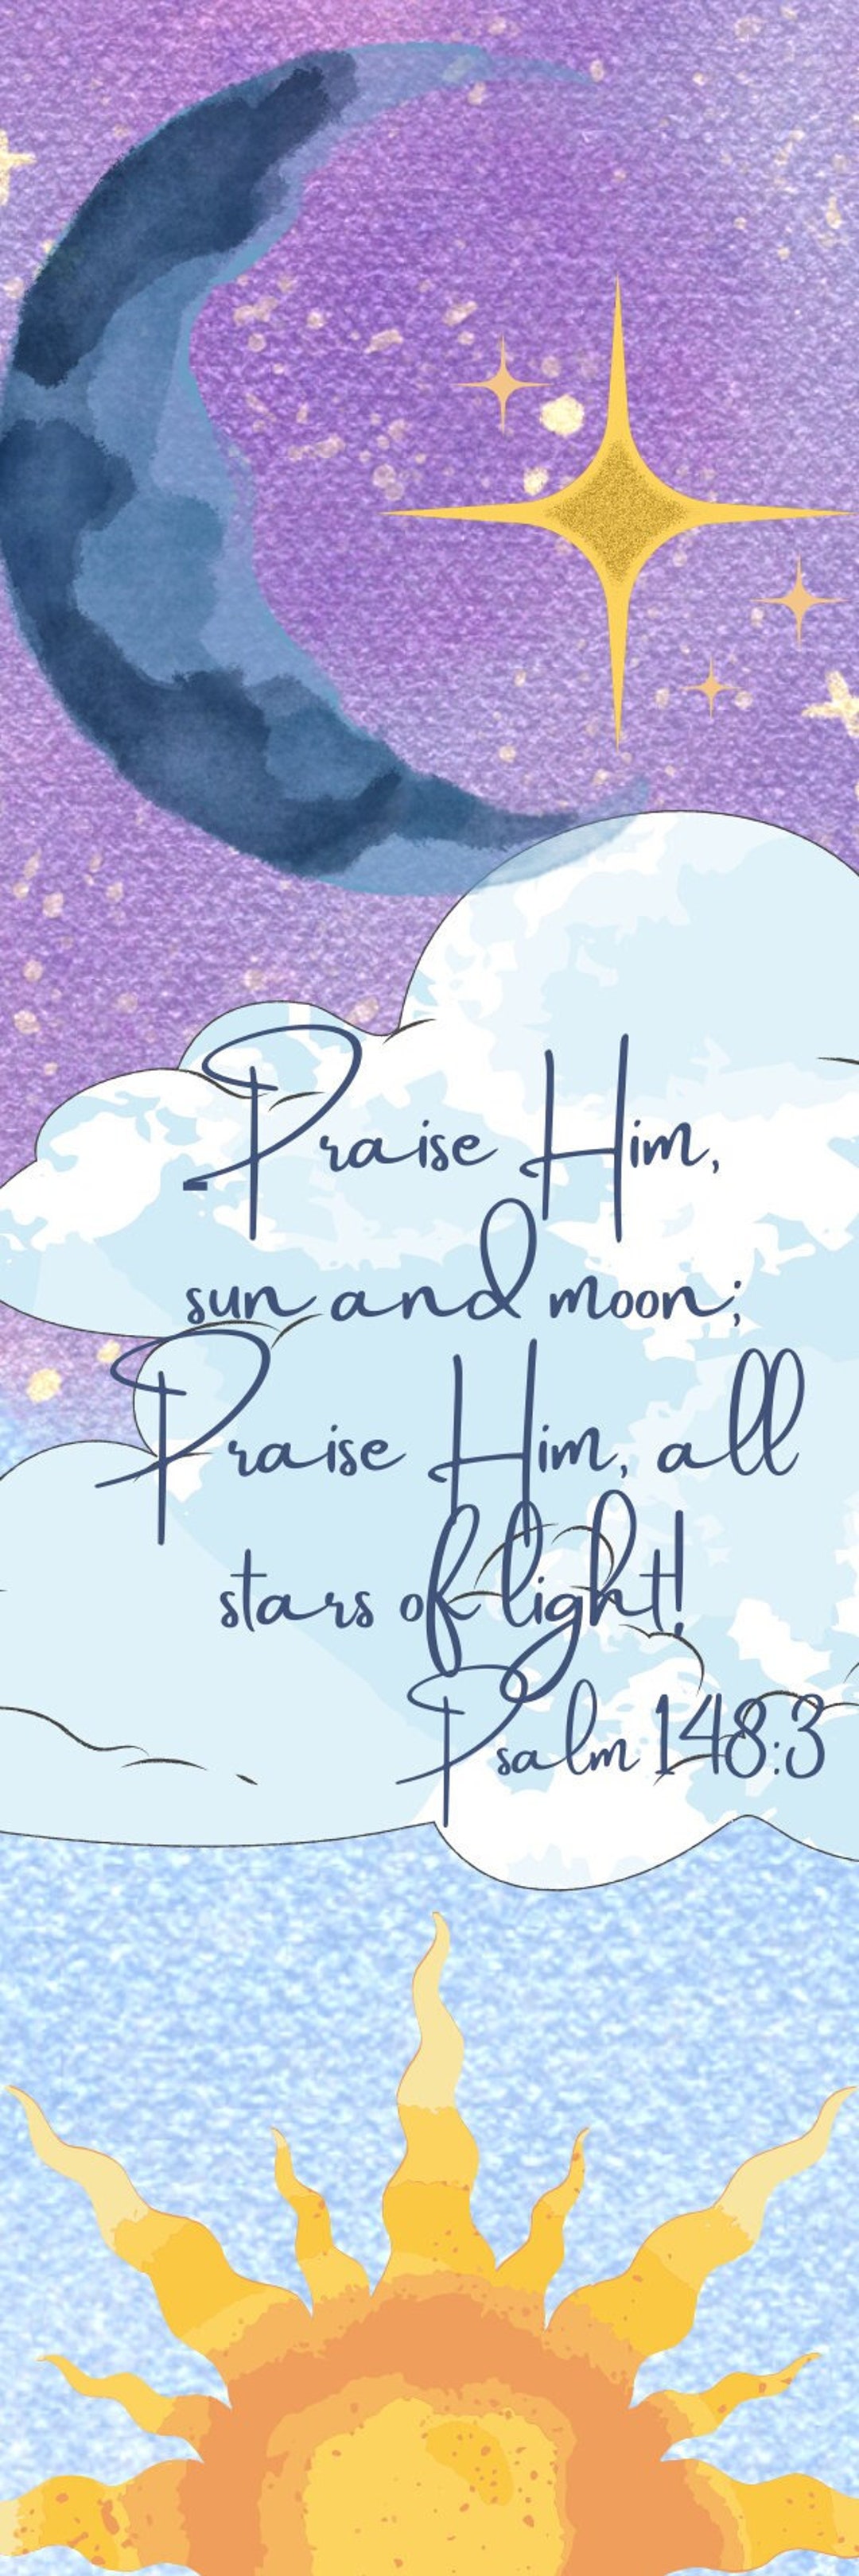 Praise Him,
sun and moon;
Praise Him, all
stars of light!
Psalm 148:3